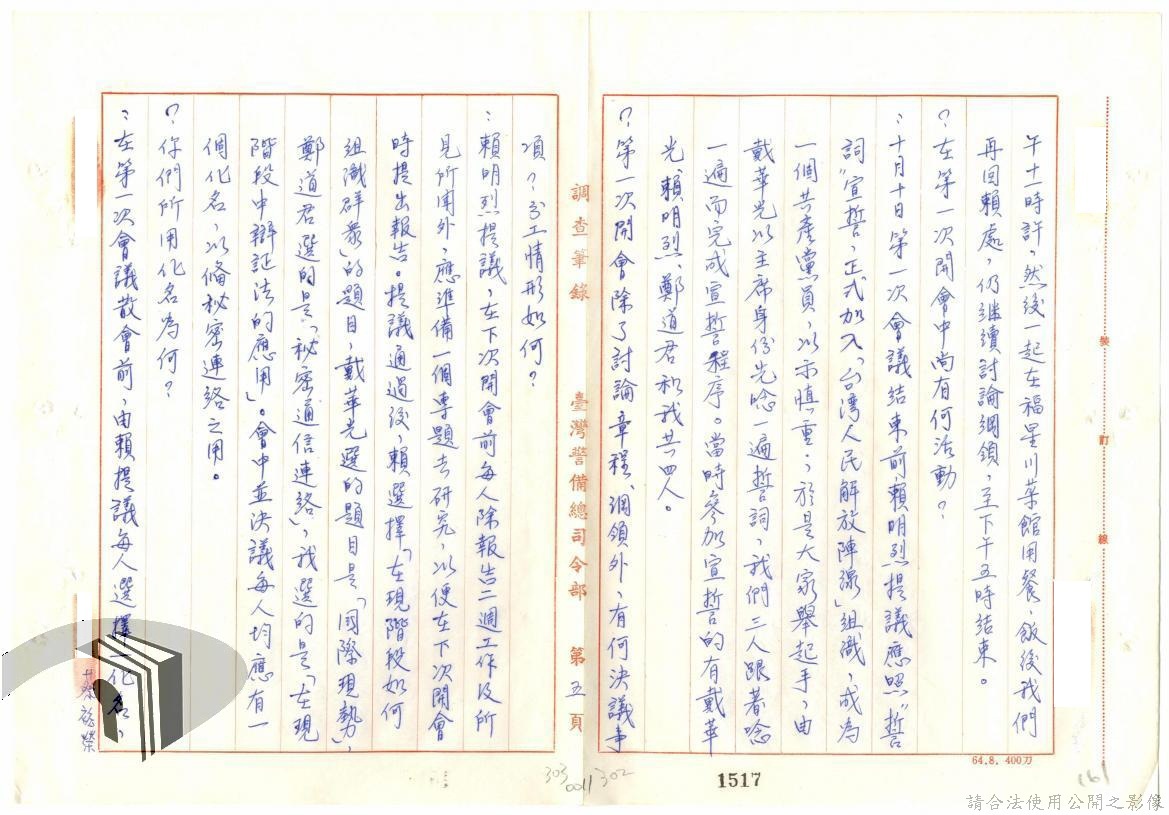 午十一時許，然後一起在福星川菜館用餐，飯後我們
再回賴處，仍継續討論綱領，至下午五時結束。
？在第一次開會中尚有何活動？
：十月十日第一次會議結束前，賴明烈提議應照“誓
詞”宣誓，正式加入「台湾人民解放陣線」組織，成為
一個共產黨員，以示慎重；於是大家舉起手，由
戴華光以主席身份先唸一遍誓詞，我們三人跟著唸
一遍而完成宣誓程序。當時參加宣誓的有戴華
光、賴明烈、鄭道君和我共四人。
？第一次開會除了討論章程、綱領外，有何決議事
調查筆錄 臺灣警備總司令部 第五頁
項？分工情形如何？
：賴明烈提議，在下次開會前每人除報告二週工作及所
見所聞外，應準備一個專題去研究，以便在下次開會
時提出報告。提議通過後，賴選擇「在現階段如何
組織群眾」的題目，戴華光選的題目是「國際現勢」，
鄭道君選的是「秘密通信連絡」，我選的是「在現
階段中辯証法的應用」。會中並決議每人均應有一
個化名，以俻秘密連絡之用。
？你們所用化名為何？
：在第一次會議散會前，由賴提議每人選擇一化名，
蔡裕榮
裝 訂 線
64.8. 400刀
303
0011
302
1517
161
請合法使用公開之影像